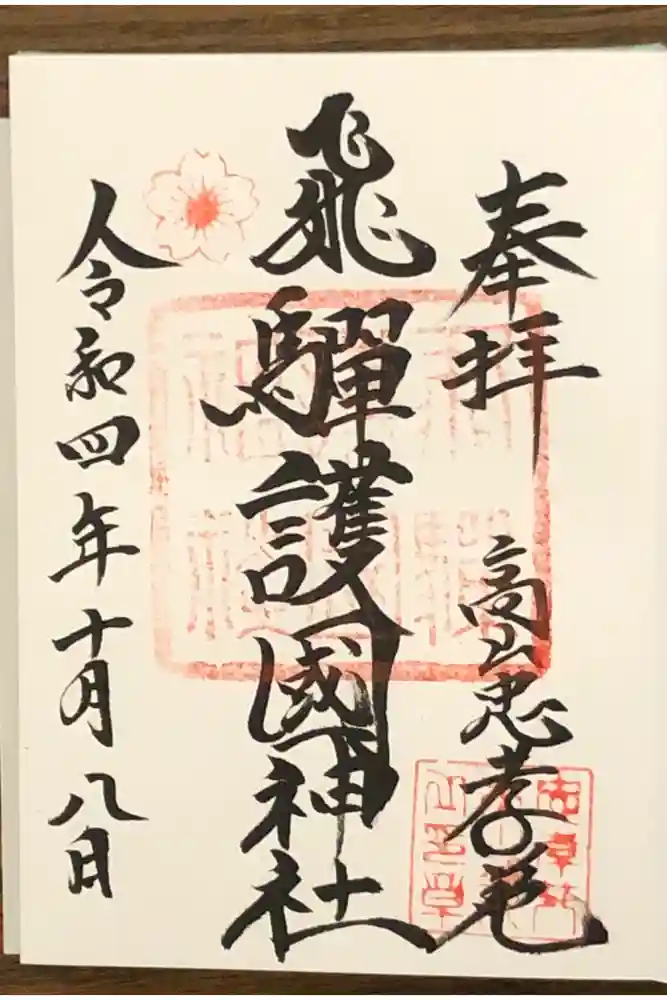 奉拝
高山忠孝苑
飛騨護國神社
令和四年十月八日